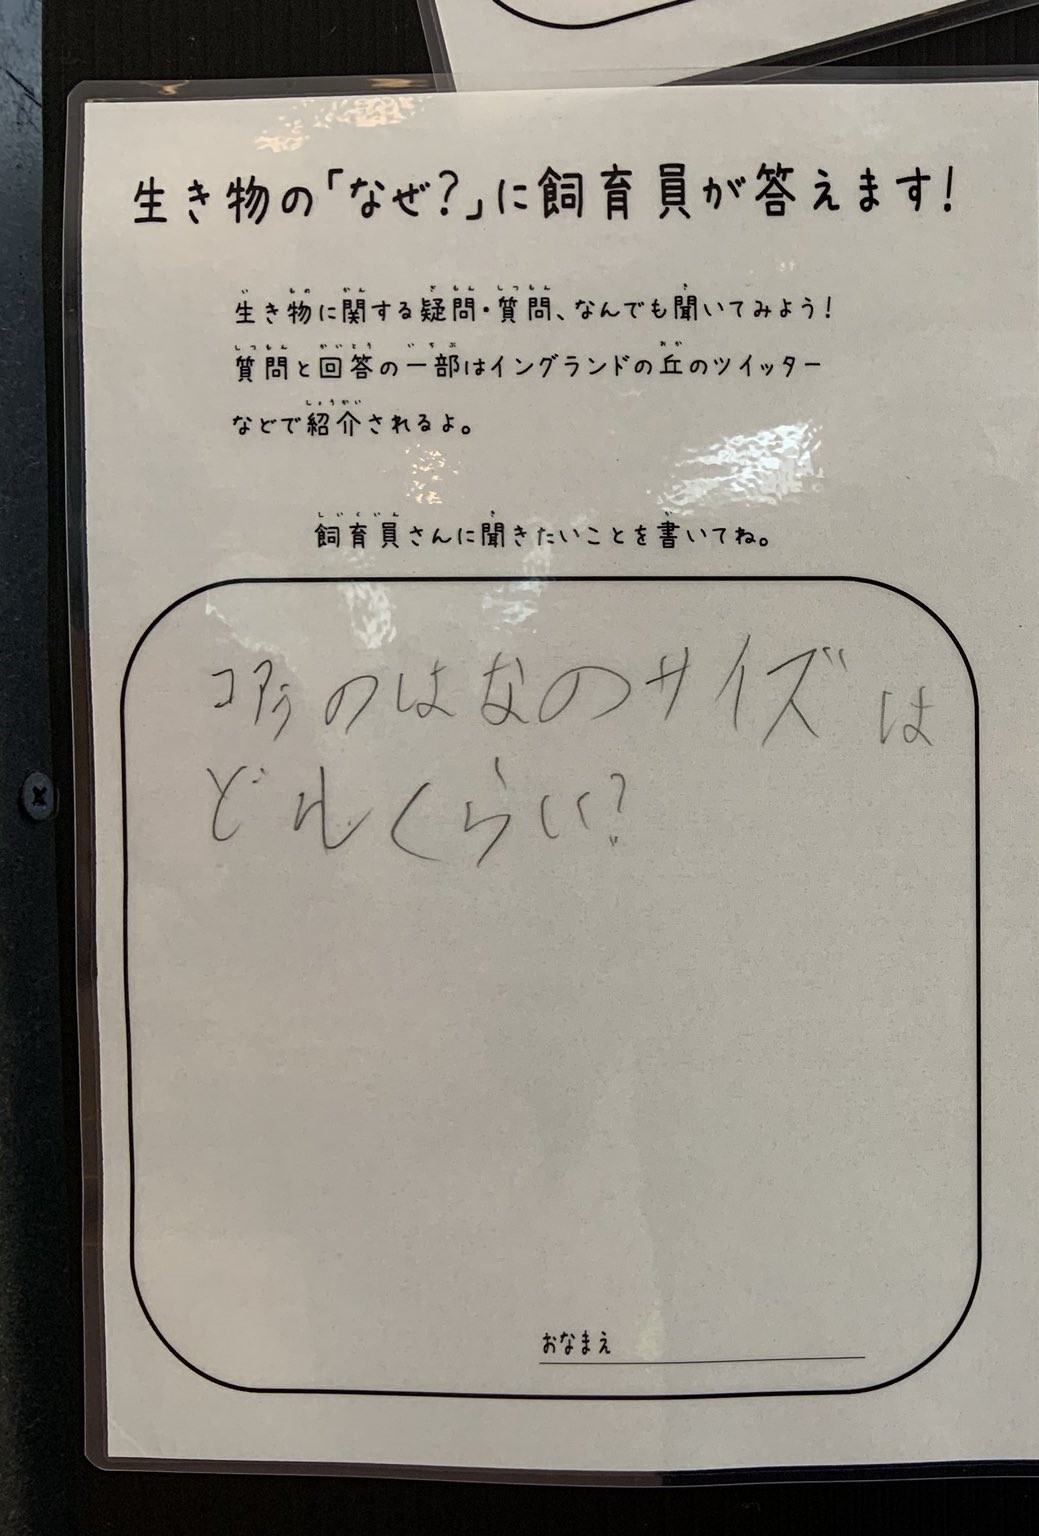 生き物の「なぜ?」に飼育員が答えます!
生き物に関する疑問・質問、なんでも聞いてみよう!
質問と回答の一部はイングランドの丘のツイッター
などで紹介されるよ。
飼育員さんに聞きたいことを書いてね。
コアラのはなのサイズは
どれくらい?
おなまえ